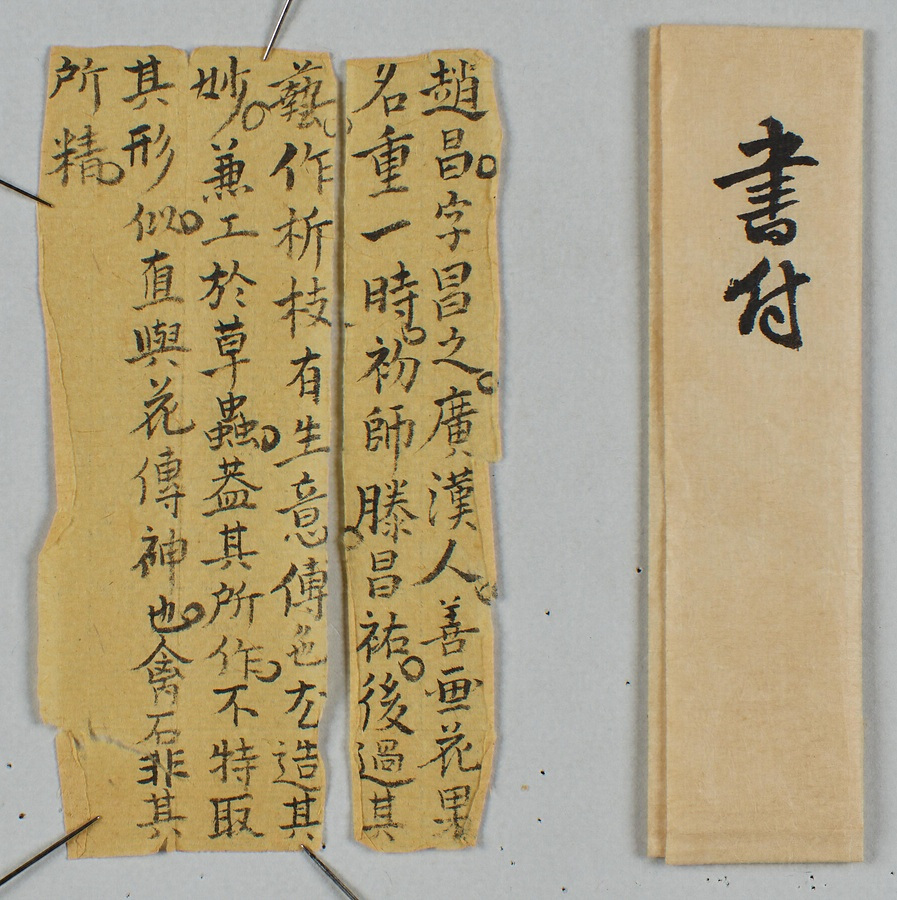 趙昌字昌之廣漢人善画花果
名重一時初師滕昌祐後過其
藝作折枝有生意傅色尤造其
妙兼工於草蟲盖其所作不特取
其形似直與花傳神也禽石非其
所精
書付